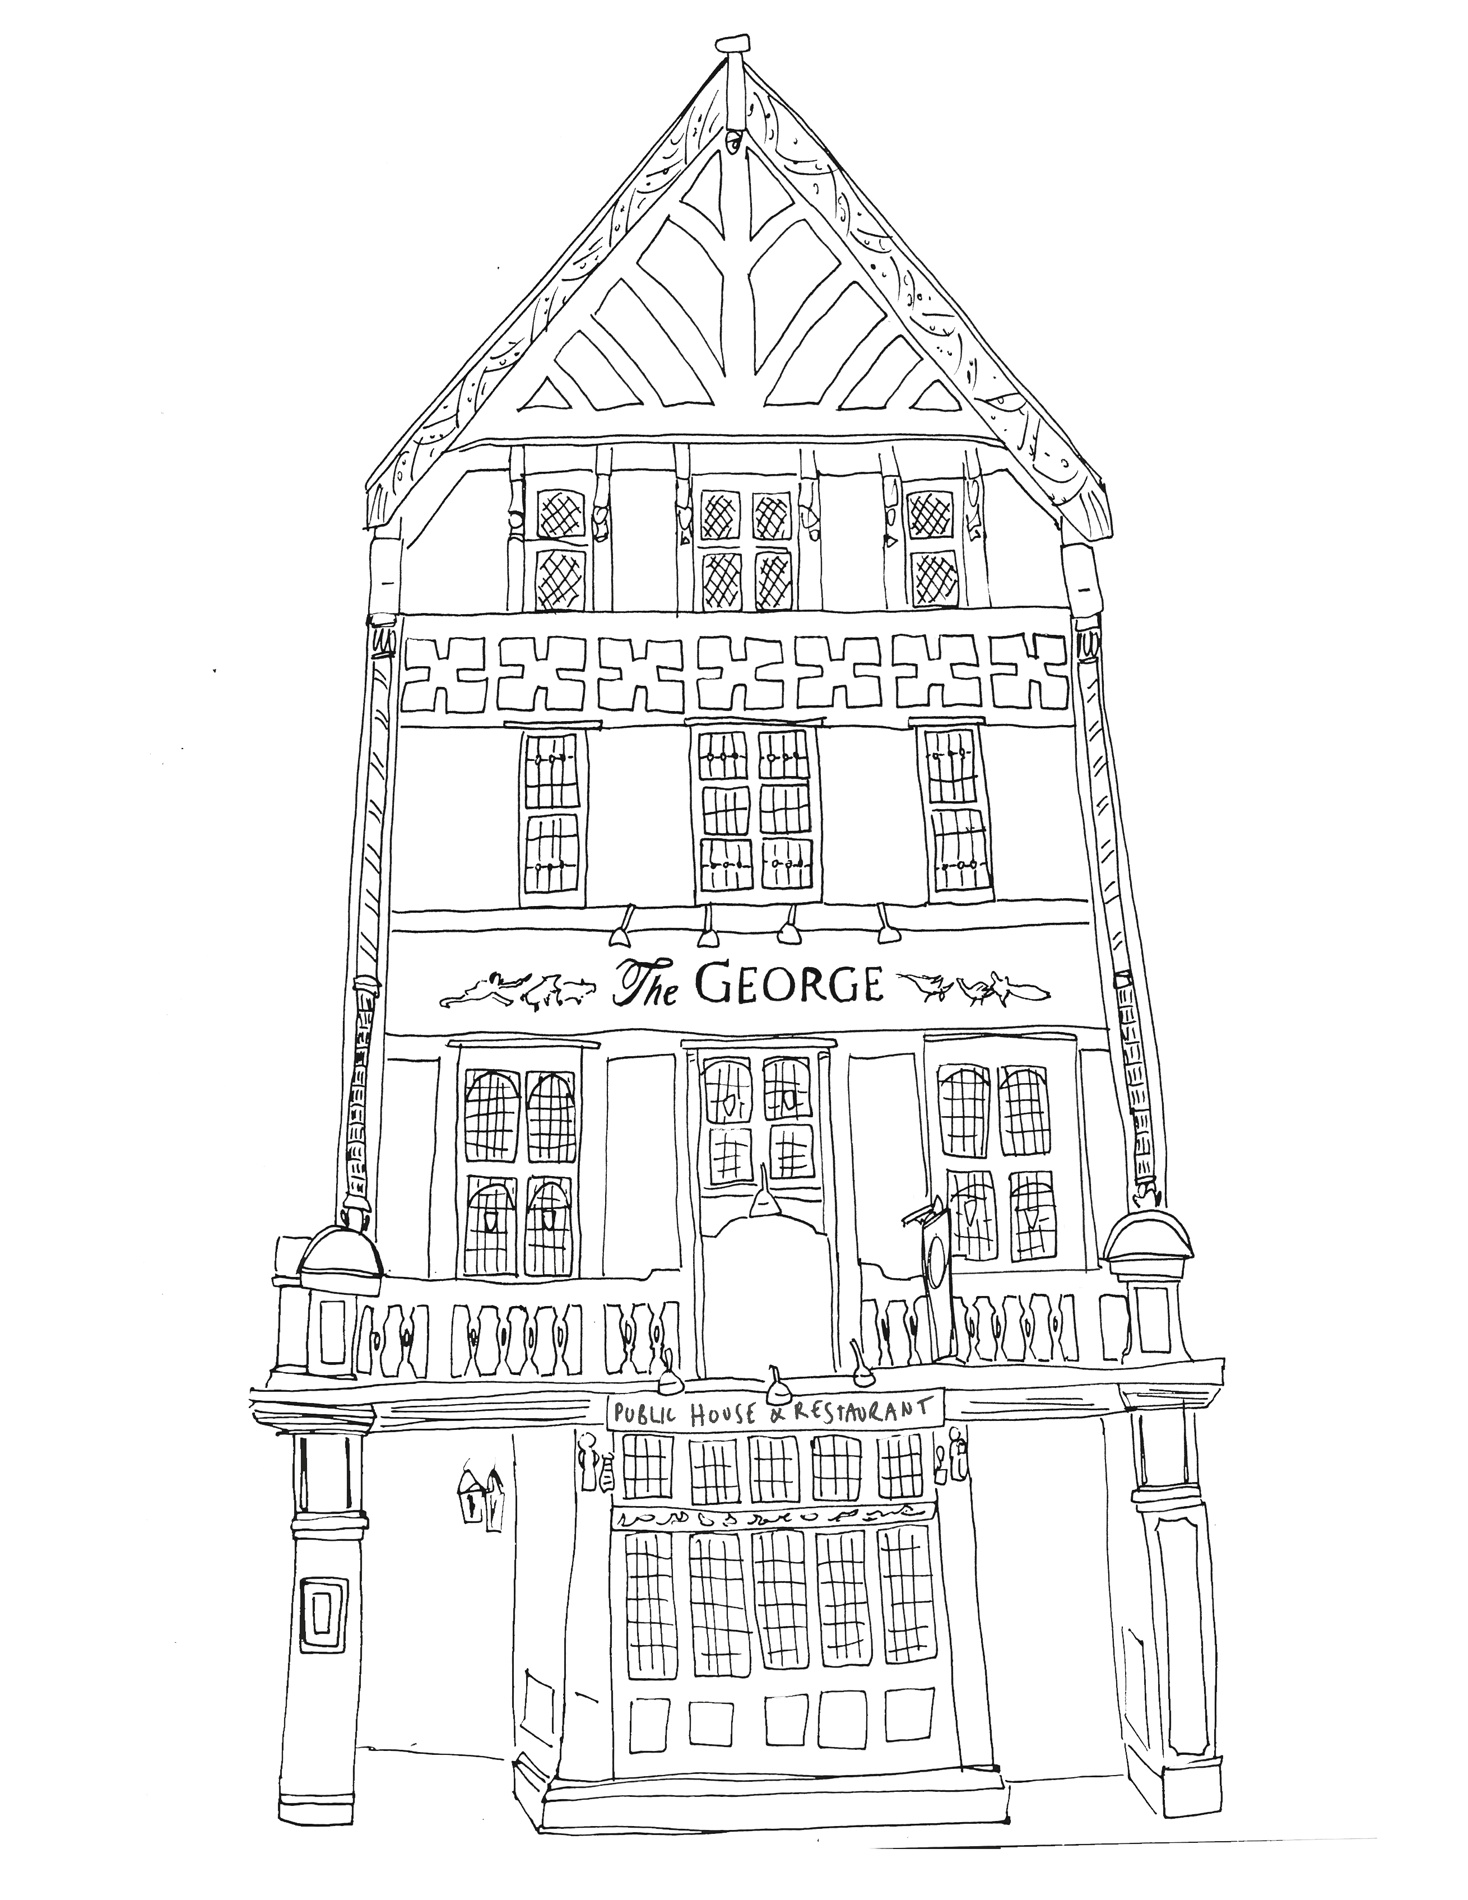 The GEORGE
PUBLIC HOUSE & RESTAURANT